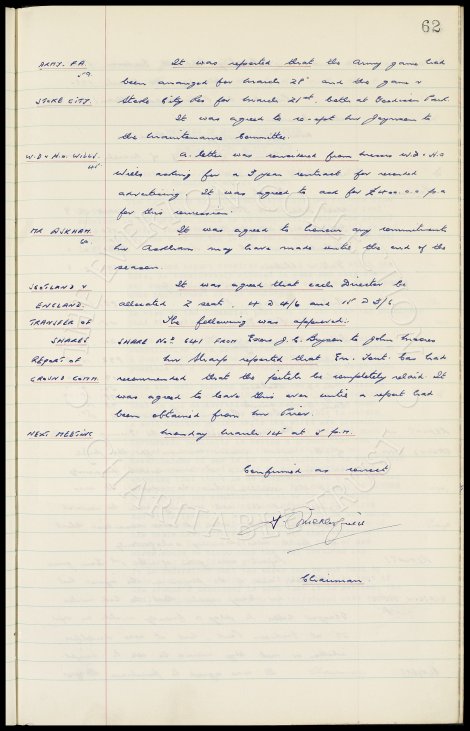 62
ARMY. F.A. It was reported that the Army game had
59. been arranged for March 28th and the game v
STOKE CITY. Stoke City Res for March 21st. both at Goodison Park.
It was agreed to co-opt Mr
the Maintenance Committee.
W.D & H.O. WILLS. A letter was received from Messrs W.D. & H.O
Wills asking for a 3 year contract for record
advertising. It was agreed to ask for £400.0.0 p.a
for this concession.
MR ASKHAM. It was agreed to honour any commitments
60. Mr Askham may have made until the end of the
season.
SCOTLAND v It was agreed that each Director be
ENGLAND. allocated 2 seats. 4 @ 4/6 and 15 @ 3/6
TRANSFER OF The following was approved:
SHARES SHARE No. 641 FROM Exors J.C. to John Moores
REPORT OF Mr Sharp reported that En. Tout Cas had
GROUND COMM. recommended that the pitch be completely relaid. It
was agreed to leave this over until a report had
been obtained from Mr Prior.
NEXT MEETING Monday March 14th at 5 p.m.
Confirmed as correct
Chairman.
EVERTON
CHARITABLE TRUST